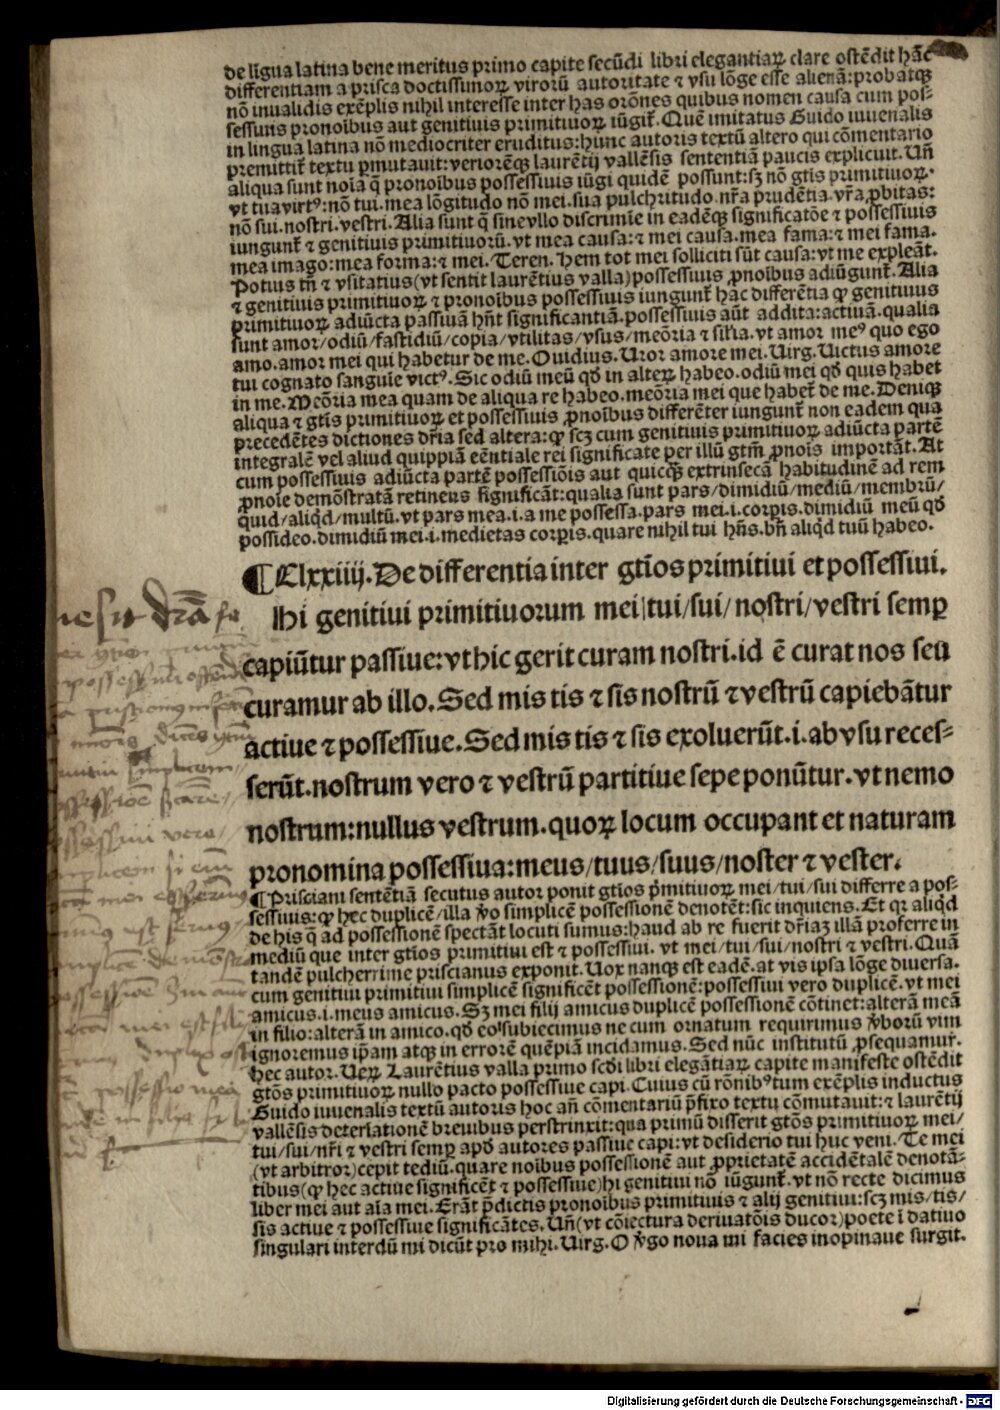 de līgua latina bene meritus primo capite secūdi libri elegantiaꝝ clare ostēdit hāc
differentiam a prisca doctissimoꝝ virorū autoritate ⁊ vsu lōge esse alienā: probatqꝫ
nō inualidis exēplis nihil interesse inter has orōnes quibus nomen causa cum pos-
sessiuis pronoībus aut genitiuis primitiuoꝝ iūgit᷑. Quē imitatus Guido iuuenalis
in lingua latina nō mediocriter eruditus: hunc autoris textū altero qui cōmentario
premittit᷑ textu ꝑmutauit: veriorēqꝫ laurētij vallēsis sententiā paucis explicuit. Uñ
aliqua sunt noīa q̄ pronoībus possessiuis iūgi quidē possunt: sꝫ nō gtīs primitiuoꝝ.
vt tua virtꝰ: nō tui. mea lōgitudo nō mei. sua pulchritudo. nr̄a prudētia. vr̄a ꝓbitas:
nō sui. nostri. vestri. Alia sunt q̄ sine vllo discrimīe in eadēqꝫ significatōe ⁊ possessiuis
iungunt᷑ ⁊ genitiuis primitiuorū. vt mea causa: ⁊ mei causa. mea fama: ⁊ mei fama.
mea imago: mea forma: ⁊ mei. Teren. Hem tot mei solliciti sūt causa: vt me expleāt.
Potius tñ ⁊ vsitatius (vt sentit laurētius valla) possessiuis ꝓnoībus adiūgunt᷑. Alia
⁊ genitiuis primitiuoꝝ ⁊ pronoībus possessiuis iungunt᷑ hac differētia ꝙ genitiuus
primitiuoꝝ adiūcta passiuā hñt significantiā. possessiuis aūt addita: actiuā. qualia
sunt amor/odiū/fastidiū/copia/vtilitas/vsus/meōria ⁊ silīa. vt amor meꝰ quo ego
amo. amor mei qui habetur de me. Ouidius. Uror amore mei. Uirg. Uictus amore
tui cognato sanguīe victꝰ. Sic odiū meū qđ in alteꝝ habeo. odiū mei qđ quis habet
in me. Meōria mea quam de aliqua re habeo. meōria mei que habet᷑ de me. Deniqꝫ
aliqua ⁊ gtīs primitiuoꝝ et possessiuis ꝓnoībus differēter iungunt᷑ non eadem qua
precedētes dictiones dr̄ia sed altera: ꝙ scꝫ cum genitiuis primitiuoꝝ adiūcta partē
integralē vel aliud quippiā eēntiale rei significate per illū gtm̄ ꝓnoīs importāt. At
cum possessiuis adiūcta partē possessiōis aut quicqꝫ extrinsecā habitudinē ad rem
ꝓnoīe demōstratā retinens significāt: qualia sunt pars/dimidiū/mediū/membrū/
quid/aliqđ/multū. vt pars mea .i. a me possessa. pars mei .i. corꝑis. dimidiū meū qđ
possideo. dimidiū mei .i. medietas corꝑis. quare nihil tui hñs. bñ aliqđ tuū habeo.
¶ Clxxiiij. De differentia inter gtīos primitiui et possessiui.
Hi genitiui primitiuorum mei/tui/sui/nostri/vestri semꝑ
capiūtur passiue: vt hic gerit curam nostri. id ē curat nos seu
curamur ab illo. Sed mis tis ⁊ sis nostrū ⁊ vestrū capiebātur
actiue ⁊ possessiue. Sed mis tis ⁊ sis exoluerūt .i. ab vsu reces-
serūt. nostrum vero ⁊ vestrū partitiue sepe ponūtur. vt nemo
nostrum: nullus vestrum. quoꝝ locum occupant et naturam
pronomina possessiua: meus/tuus/suus/noster ⁊ vester.
¶ Prisciani sentētiā secutus autor ponit gtīos pͥmitiuoꝝ mei/tui/sui differre a pos-
sessiuis: ꝙ hec duplicē/illa ỽo simplicē possessionē denotēt: sic inquiens. Et qꝛ aliqđ
de his q̄ ad possessionē spectāt locuti sumus: haud ab re fuerit dr̄iaꝫ illā proferre in
mediū que inter gtīos primitiui est ⁊ possessiui. vt mei/tui/sui/nostri ⁊ vestri. Quā
tandē pulcherrime priscianus exponit. Uox nanqꝫ est eadē. at vis ipsa lōge diuersa.
cum genitiui primitiui simplicē significēt possessionē: possessiui vero duplicē. vt mei
amicus .i. meus amicus. Sꝫ mei filij amicus duplicē possessionē cōtinet: alterā meā
in filio: alterā in amico. qđ eo subiecimus ne cum ornatum requirimus ỽborū vim
ignoremus ip̄am atqꝫ in errorē quēpiā incidamus. Sed nūc institutū ꝓsequamur.
hec autor. Ueꝝ Laurētius valla primo scđi libri elegātiaꝝ capite manifeste ostēdit
gtōs primitiuoꝝ nullo pacto possessiue capi. Cuius cū rōnibꝰ tum exēplis inductus
Guido iuuenalis textū autoris hoc añ cōmentariū p̄fixo textu cōmutauit: ⁊ laurētij
vallēsis deterlationē breuibus perstrinxit: qua primū disserit gtōs primitiuoꝝ mei/
tui/sui/nr̄i ⁊ vestri semꝑ apđ autores passiue capi: vt desiderio tui huc veni. Te mei
(vt arbitror) cepit tediū. quare noībus possessionē aut ꝓprietatē accidētalē denotā-
tibus (ꝙ hec actiue significēt ⁊ possessiue) hi genitiui nō iūgunt᷑. vt nō recte dicimus
liber mei aut aīa mei. Erāt p̄dictis pronoībus primitiuis ⁊ alij genitiui: scꝫ mis/tis/
sis actiue ⁊ possessiue significātes. Uñ (vt cōiectura deriuatōis ducor) poete ī datiuo
singulari interdū mi dicūt pro mihi. Uirg. O ỽgo noua mi facies inopinaue surgit.
Digitalisierung gefördert durch die Deutsche Forschungsgemeinschaft - DFG